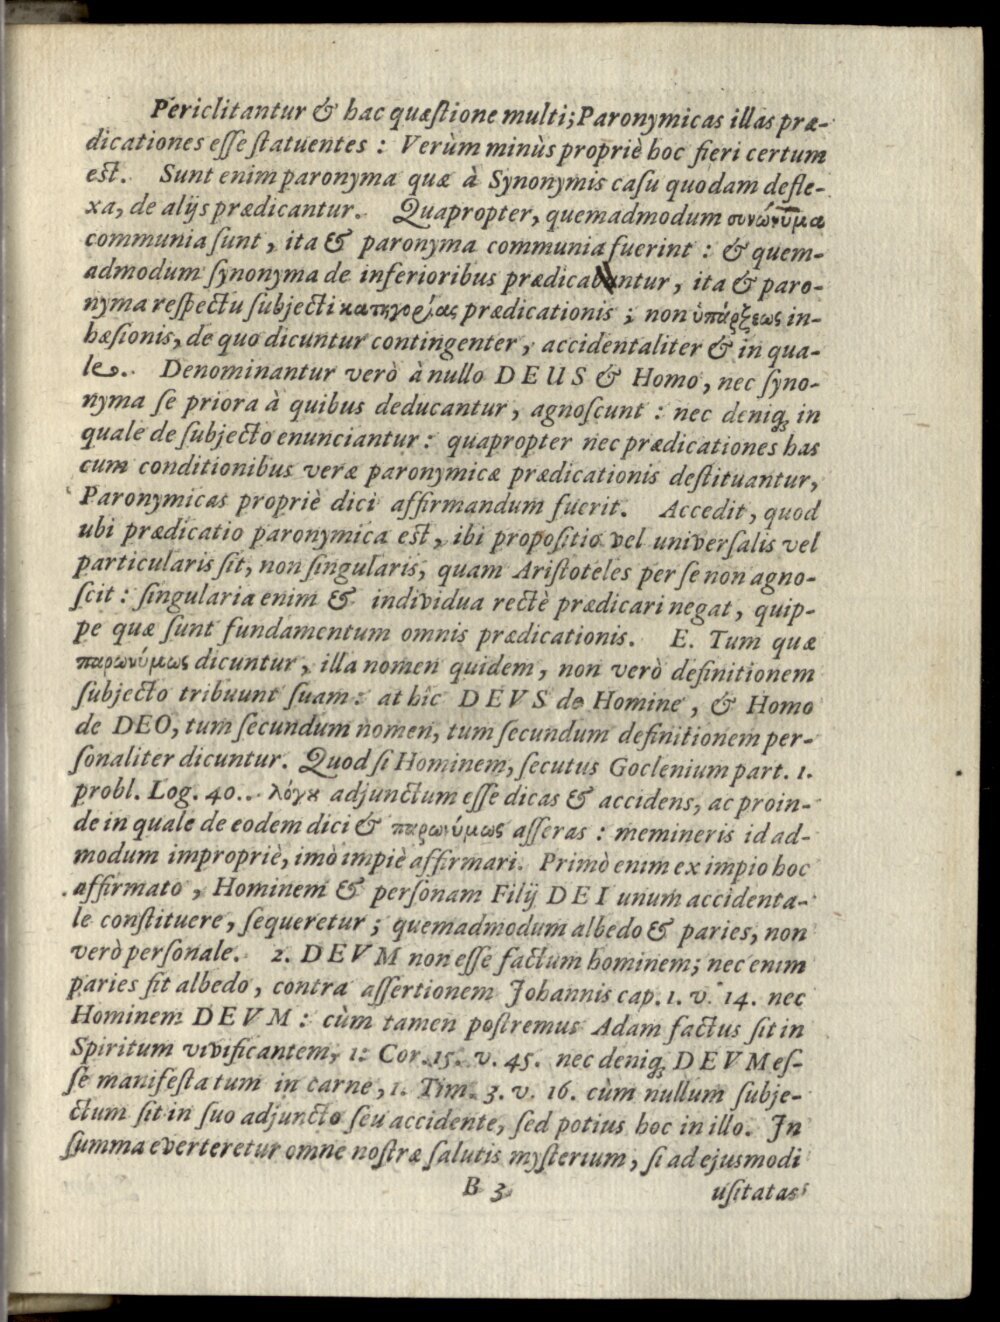 Periclitantur & hac quæſtione multi; Paronymicas illas præ-
dicationes eſſe ſtatuentes : Verùm minùs propriè hoc fieri certum
eſt. Sunt enim paronyma quæ à Synonymis caſu quodam defle-
xa, de alijs prædicantur. Quapropter, quemadmodum συνώνυμα
communia ſunt, ita & paronyma communia fuerint : & quem-
admodum ſynonyma de inferioribus prædicabuntur, ita & paro-
nyma reſpectu ſubjecti κατηγορίας prædicationis ; non ὑπάρξεως in-
hæſionis, de quo dicuntur contingenter, accidentaliter & in qua-
le. Denominantur verò à nullo DEUS & Homo, nec ſyno-
nyma ſe priora à quibus deducantur, agnoſcunt : nec deniq; in
quale de ſubjecto enunciantur : quapropter nec prædicationes has
cum conditionibus veræ paronymicæ prædicationis deſtituantur,
Paronymicas propriè dici affirmandum fuerit. Accedit, quod
ubi prædicatio paronymica est, ibi propoſitio vel univerſalis vel
particularis ſit, non ſingularis, quam Ariſtoteles per ſe non agno-
ſcit : ſingularia enim & individua rectè prædicari negat, quip-
pe quæ ſunt fundamentum omnis prædicationis. E. Tum quæ
παρωνύμως dicuntur, illa nomen quidem, non verò definitionem
ſubjecto tribuunt ſuam : at hîc DEVS de Homine, & Homo
de DEO, tum ſecundum nomen, tum ſecundum definitionem per-
ſonaliter dicuntur. Quod ſi Hominem, ſecutus Goclenium part. 1.
probl. Log. 40.. λόγȣ adjunctum eſſe dicas & accidens, ac proin-
de in quale de eodem dici & παρωνύμως aſſeras : memineris id ad-
modum impropriè, imò impiè affirmari. Primò enim ex impio hoc
affirmato, Hominem & perſonam Filij DEI unum accidenta-
le conſtituere, ſequeretur ; quemadmodum albedo & paries, non
verò perſonale. 2. DEVM non eſſe factum hominem; nec enim
paries fit albedo, contra aſſertionem Johannis cap. 1. v. 14. nec
Hominem DEVM : cùm tamen poſtremus Adam factus ſit in
Spiritum vivificantem, 1. Cor. 15. v. 45. nec deniq; DEVM eſ-
ſe manifeſtatum in carne, 1. Tim. 3. v. 16. cùm nullum ſubje-
ctum ſit in ſuo adjuncto ſeu accidente, ſed potius hoc in illo. In
ſumma everteretur omne noſtræ ſalutis myſterium, ſi ad ejusmodi
B 3 uſitatas